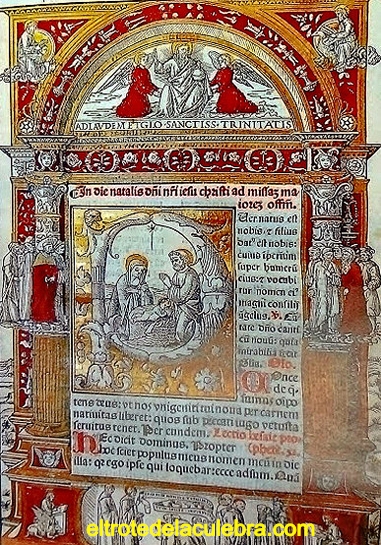 AD LAVDEM ET GLO · SANCTISS · TRINITATIS
In die natalis dñi nr̃i iesu christi ad missaz ma
iorez offm̃.
Uer natus est
nobis: et filius
datꝰ est nobis:
cuius iperium
super humerũ
eius: et vocabi
tur nomen eiꝰ
magni consilij
angelus. V. Cã
tate dño canti
cũ nouũ: quia
mirabilia fecit
Oño.
Once
tens deus: ut nos vnigeniti tui noua per carnem
natiuitas liberet: quos sub peccati iugo vetusta
seruitus tenet. Per eundem. Lectio Esaie pro
Hec dicit dominus. Propter phete. 52.
hoc sciet populus meus nomen meũ in die
illa: qr ego ipse qui loquebar: ecce adsum.
eltrotedelaculebra.com